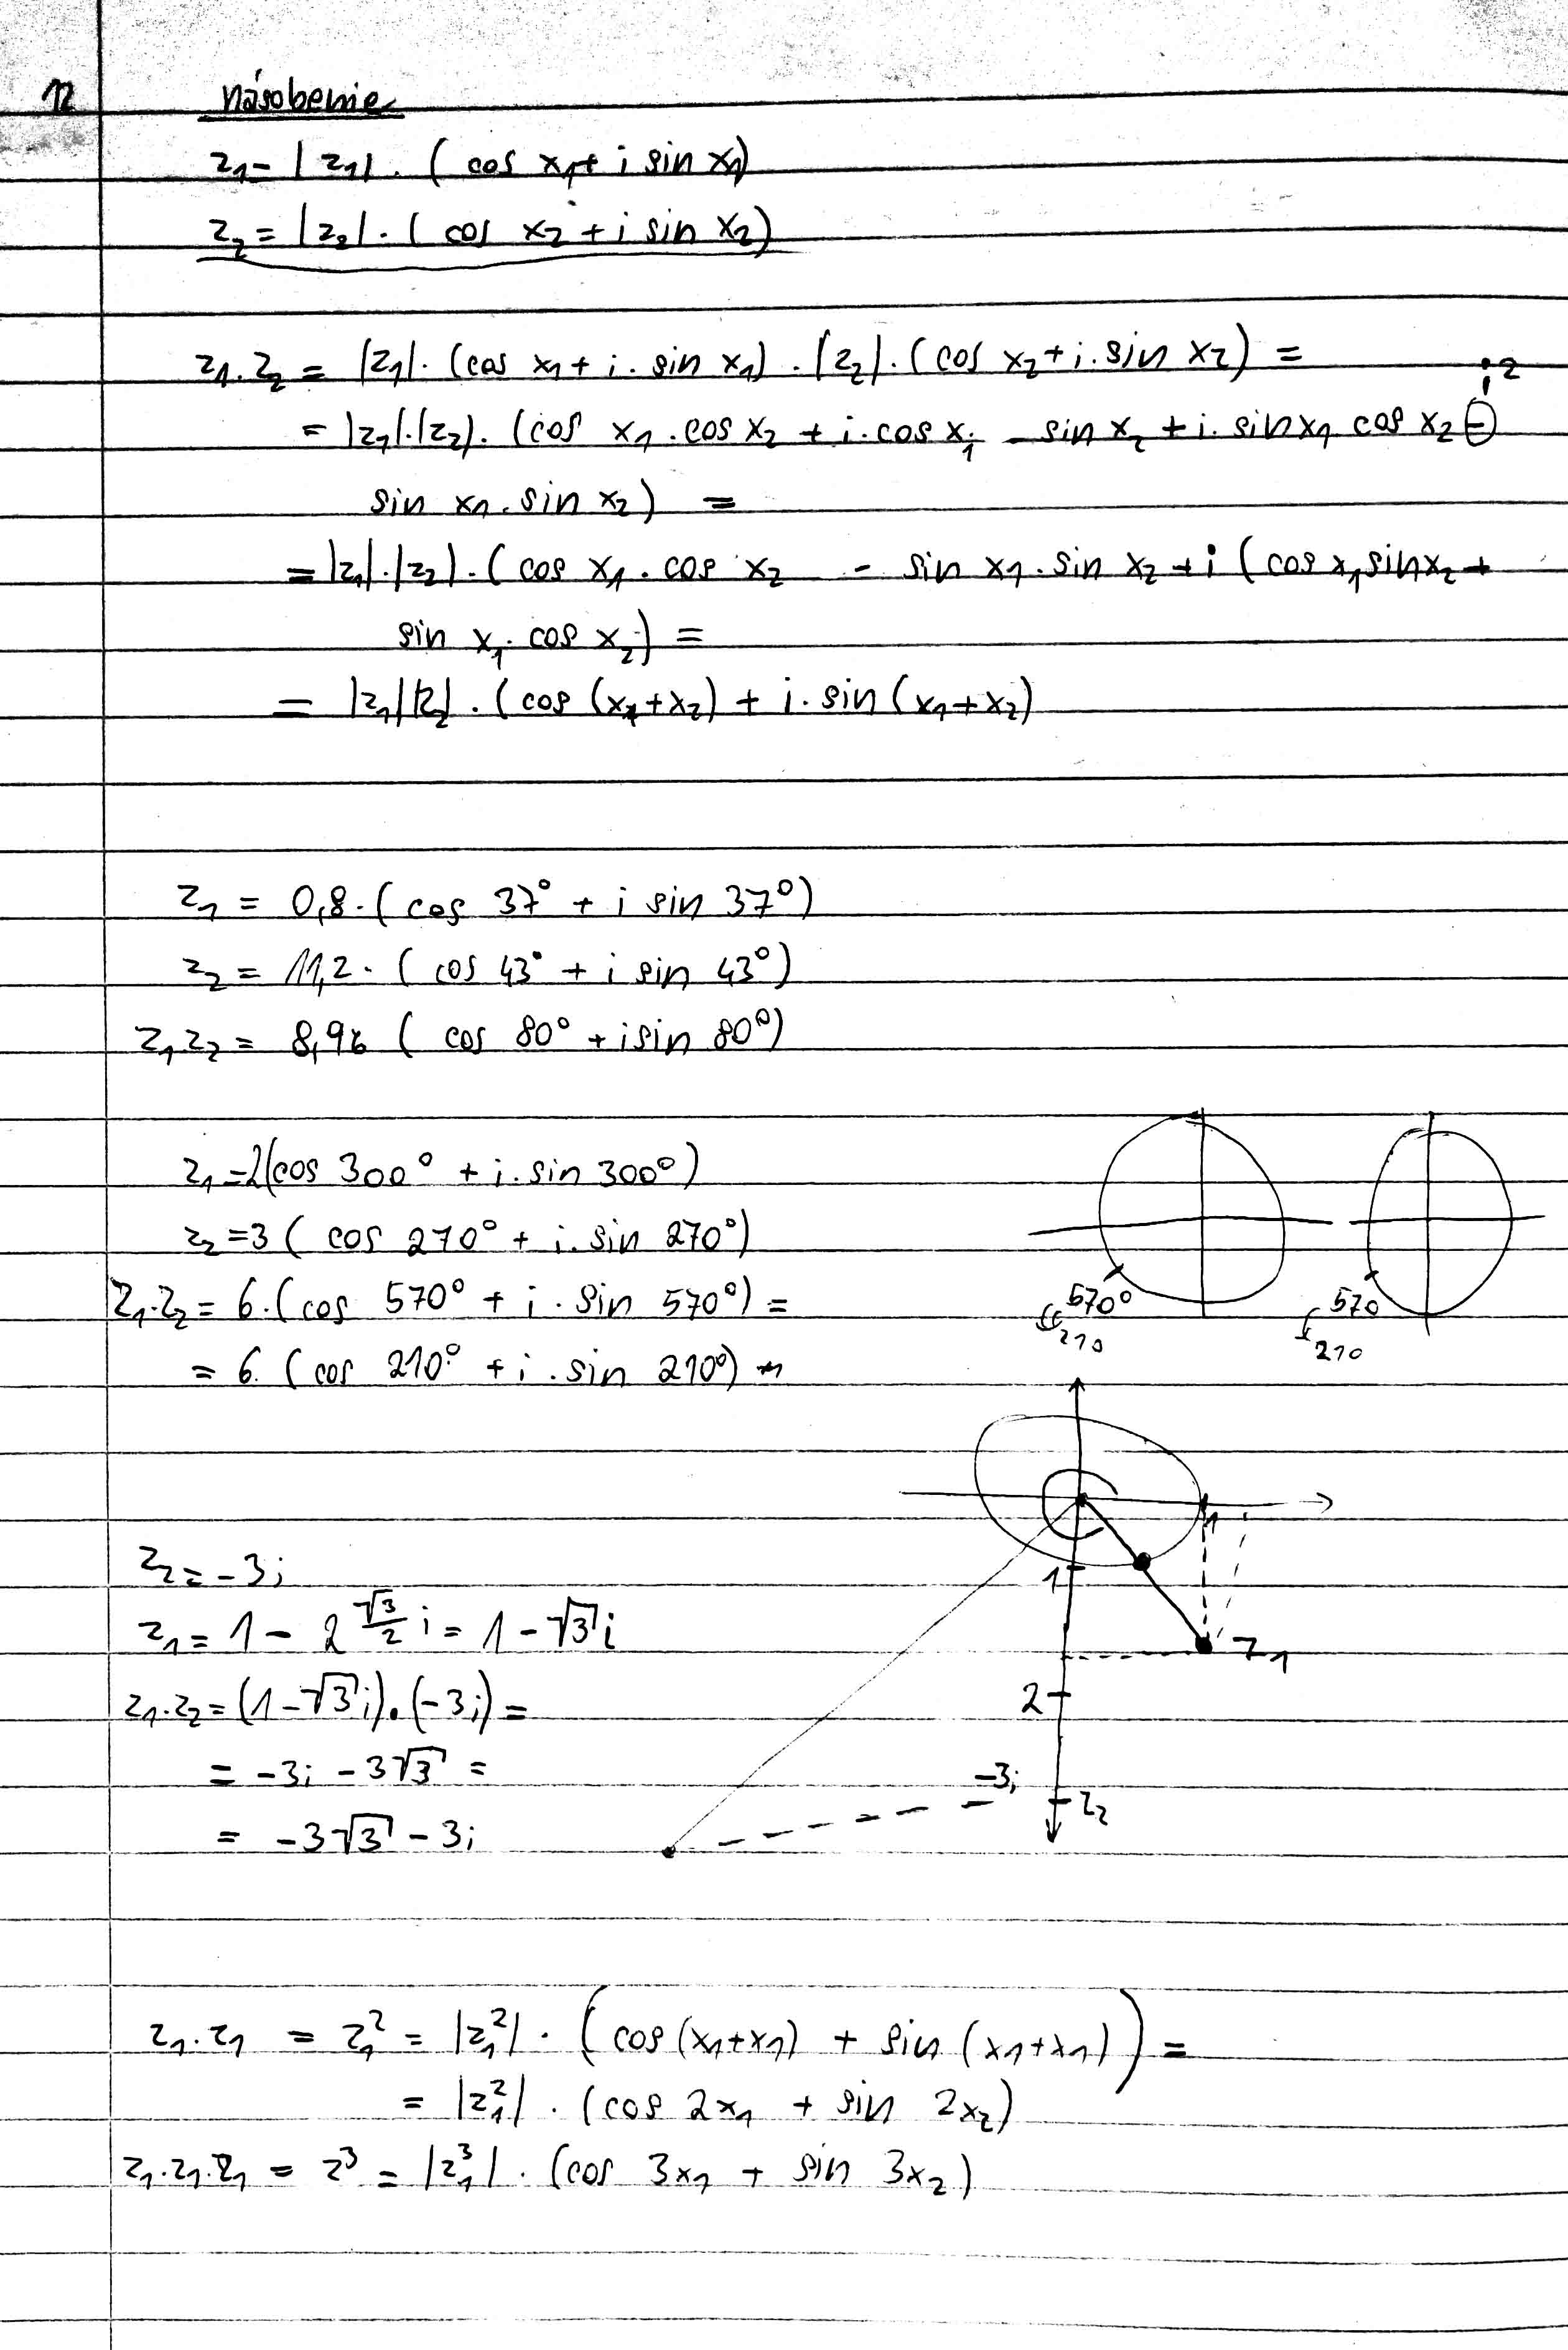 12
násobenie
z₁ = |z₁| . ( cos x₁ + i sin x₁)
z₂ = |z₂| . ( cos x₂ + i sin x₂)
z₁.z₂ = |z₁|. (cos x₁ + i . sin x₁) . |z₂|. (cos x₂ + i. sin x₂) =
i²
= |z₁|.|z₂|. (cos x₁ . cos x₂ + i . cos x₁ . sin x₂ + i. sin x₁ cos x₂ ⊖
sin x₁ . sin x₂) =
= |z₁|.|z₂|. ( cos x₁ . cos x₂ - sin x₁ . sin x₂ + i (cos x₁ sin x₂ +
sin x₁ . cos x₂) =
= |z₁||z₂| . (cos (x₁+x₂) + i. sin (x₁+x₂)
z₁ = 0,8 . ( cos 37° + i sin 37°)
z₂ = 11,2 . ( cos 43° + i sin 43°)
z₁z₂ = 8,96 ( cos 80° + i sin 80°)
z₁ = 2(cos 300° + i. sin 300°)
z₂ = 3 ( cos 270° + i. sin 270°)
z₁.z₂ = 6.(cos 570° + i . sin 570°) =
= 6. (cos 210° + i . sin 210°)
570°
210
570
210
z₂ = -3i
z₁ = 1 - 2 √3/2 i = 1 - √3 i
z₁.z₂ = (1-√3 i).(-3i) =
= -3i - 3√3 =
= -3√3 - 3i
1
1
z₁
2
-3i
z₂
z₁.z₁ = z₁² = |z₁²| . (cos (x₁+x₁) + sin (x₁+x₁)) =
= |z₁²| . (cos 2x₁ + sin 2x₂)
z₁.z₁.z₁ = z³ = |z₁³| . (cos 3x₁ + sin 3x₂)